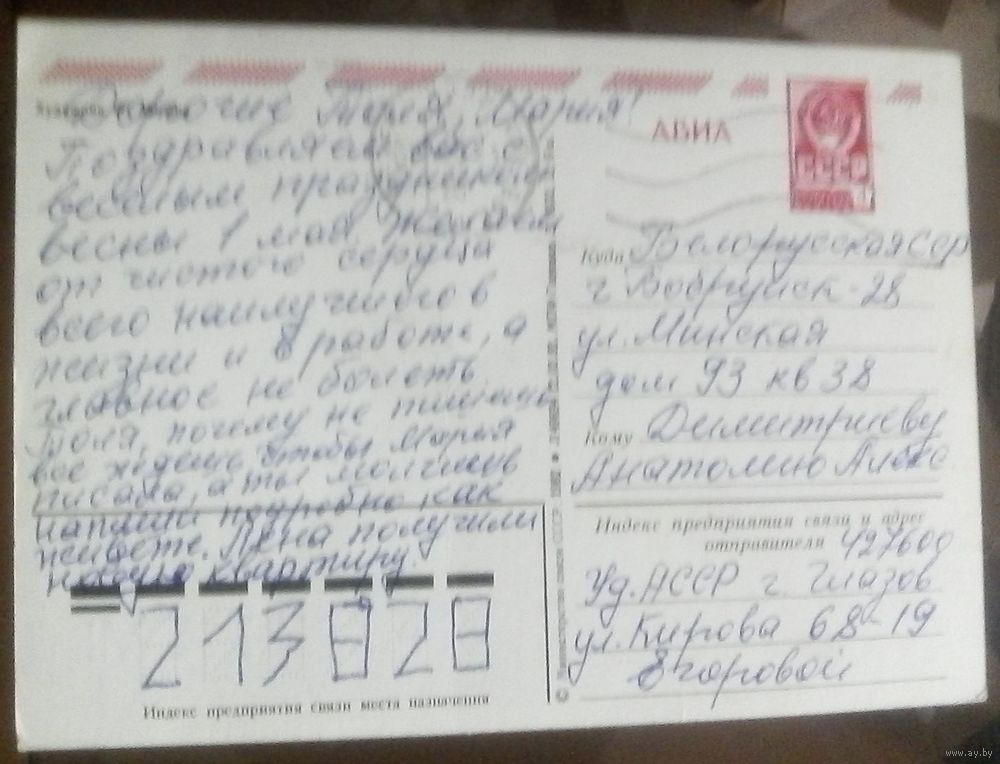 Дорогие Толя, Мария!
Поздравляем вас с
весёлым праздником
весны 1 мая желаем
от чистого сердца
всего наилучшего в
жизни и в работе, а
главное не болеть
Толя, почему не пишешь
все ждешь чтобы Мария
писала, а ты молчишь
напиши подробно как
живете. Лена получили
новую квартиру.
213828
Индекс предприятия связи места назначения
АВИА
СССР
Куда Белорусская ССР
г Бобруйск-28
ул. Минская
дом 93 кв 38
Кому Димитриеву
Анатолию Алекс
Индекс предприятия связи и адрес
отправителя 427600
Уд. АССР г. Глазов
ул. Кирова 68-19
Егоровой
www.ay.by